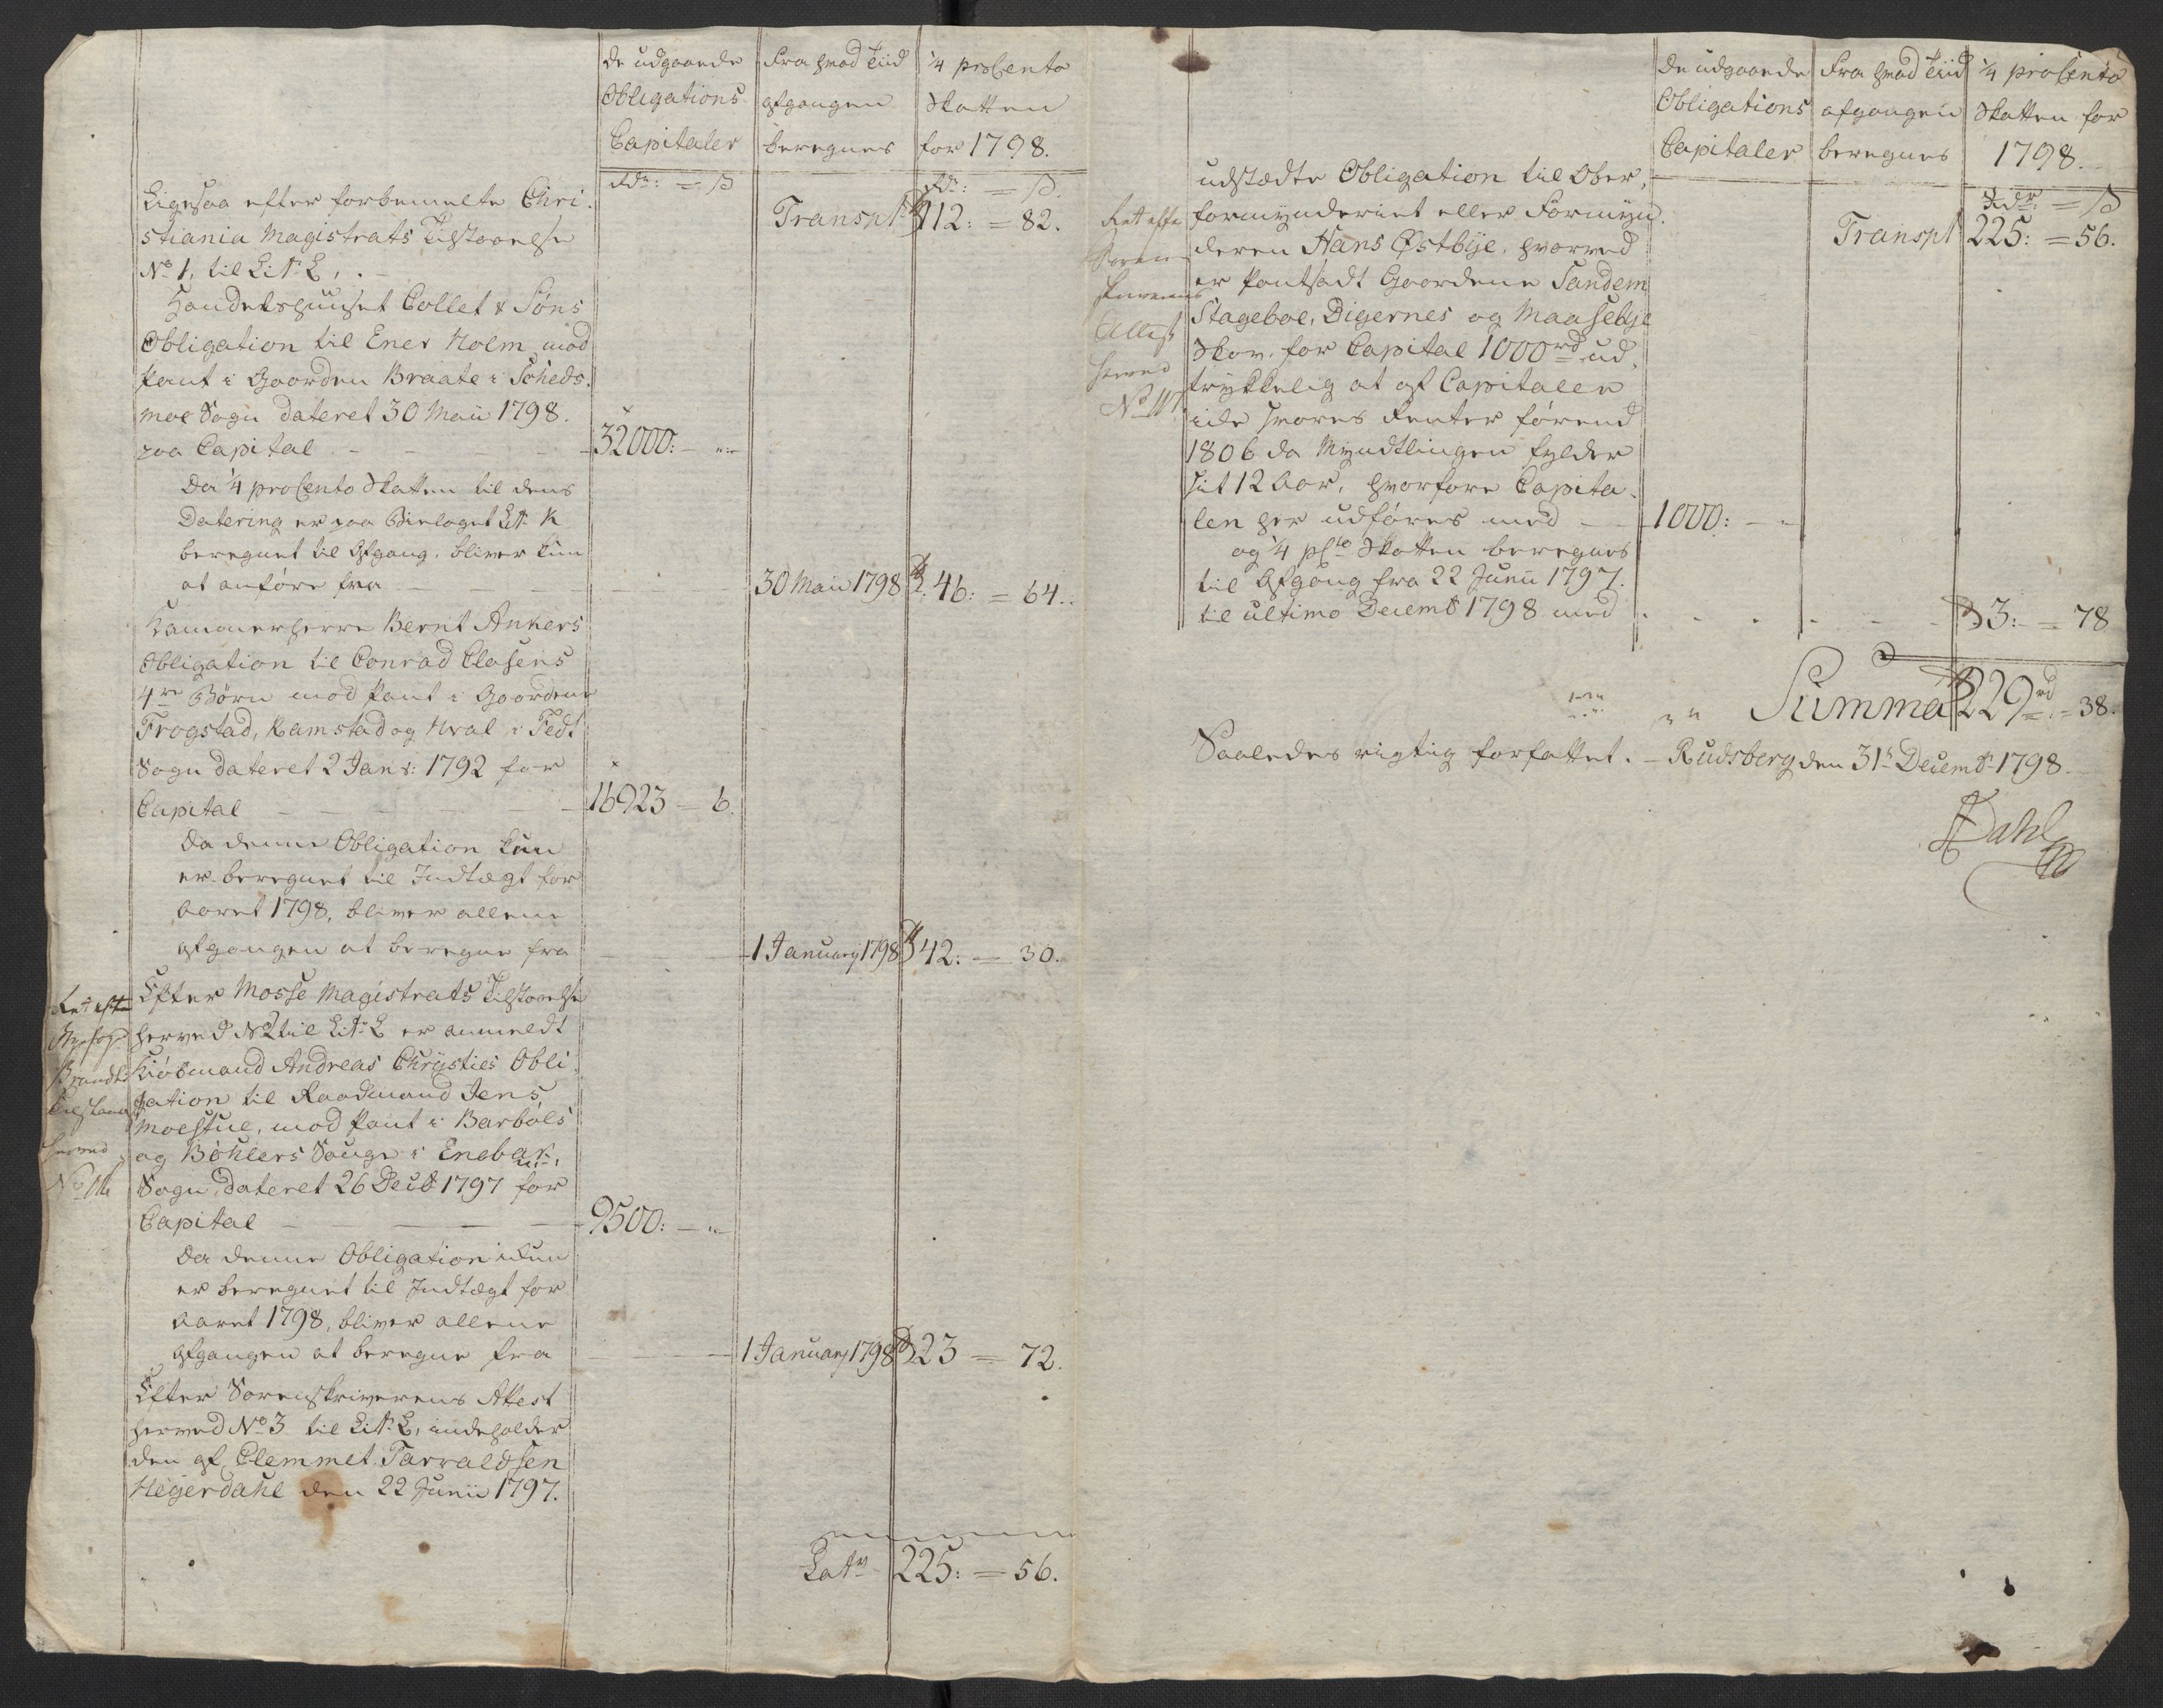 de udgaaende
Obligations
Capitaler
Fra hvad Tiid
afgangen
beregnes
1/4 proCento
Skatten
for 1798.
Rdr: = ß
Rdr: = ß.
Transpt 112: = 82.
Ligesaa efter forbemelte Chri-
stiania Magistrats Tilstaaelse
No 1, til Litr L, .
Handelshuuset Collet & Søns
Obligation til Ener Holm mod
Pant i Gaarden Braate i Scheds-
moe Sogn dateret 30 Maii 1798.
paa Capital - - - 32000: - "-
Da 1/4 proCento Skatten til dens
Datering er paa Bielaget Litr K
beregnet til Afgang, bliver kun
at anføre fra - - - 30 Maii 1798 46: = 64.
Kammerherre Bernt Ankers
Obligation til Conrad Clasens
4re Børn mod Pant i Gaardene
Frogstad, Ramstad og Hval i Fedt
Sogn dateret 2 Janr: 1792 for
Capital - - - 16923 - 6.
Da denne Obligation kun
er beregnet til Indtægt for
Aaret 1798, bliver allene
afgangen at beregne fra - - 1 January 1798 42: - 30.
Efter Mosse Magistrats Tilstaaelse
herved No 2 til Litr L er anmeldt
Kiøbmand Andreas Chrysties Obli-
gation til Raadmand Jens
Moestue, mod Pant i Barbøls
og Bøhlers Sauge i Enebak
Sogn, dateret 26 Decb 1797 for
Capital - - - 9500: - "-
Da denne Obligation ikun
er beregnet til Indtægt for
Aaret 1798, bliver allene
afgangen at beregne fra - - 1 January 1798 23 = 72.
Efter Sorenskriverens Attest
herved No 3 til Litr L, indeholder
den af Clemmet Tarraldsen
Hegerdahl den 22 Junii 1797.
Latr 225: = 56.
Rett efter
Brandts
herved
de udgaaende
Obligations
Capitaler
Fra hvad Tiid
afgangen
beregnes
1/4 proCento
Skatten for
1798.
Rdr = ß
Transpt 225: = 56.
udstædte Obligation til Ober-
formynderiet eller Formyn-
deren Hans Østbye, hvorved
er Pantsadt Gaardene Sandem
Stageboe, Digernes og Maasebye
Skov, for Capital 1000rd ud-
trykkelig at af Capitalen
icke svares Renter førend
1806 da Myndtlingen fylder
sit 12 Aar, hvorfore Capita-
len her udføres med - - 1000: - "
og 1/4 pCto Skatten beregnes
til Afgang fra 22 Junii 1797.
til ultimo Decembr 1798 med - - - 3: = 78
Rett efter
Soren
skriverens
Attest
herved
Summa 229rd = 38.
Saaledes rigtig forfattet. - Rudsberg den 31te Decembr 1798.
Dahl